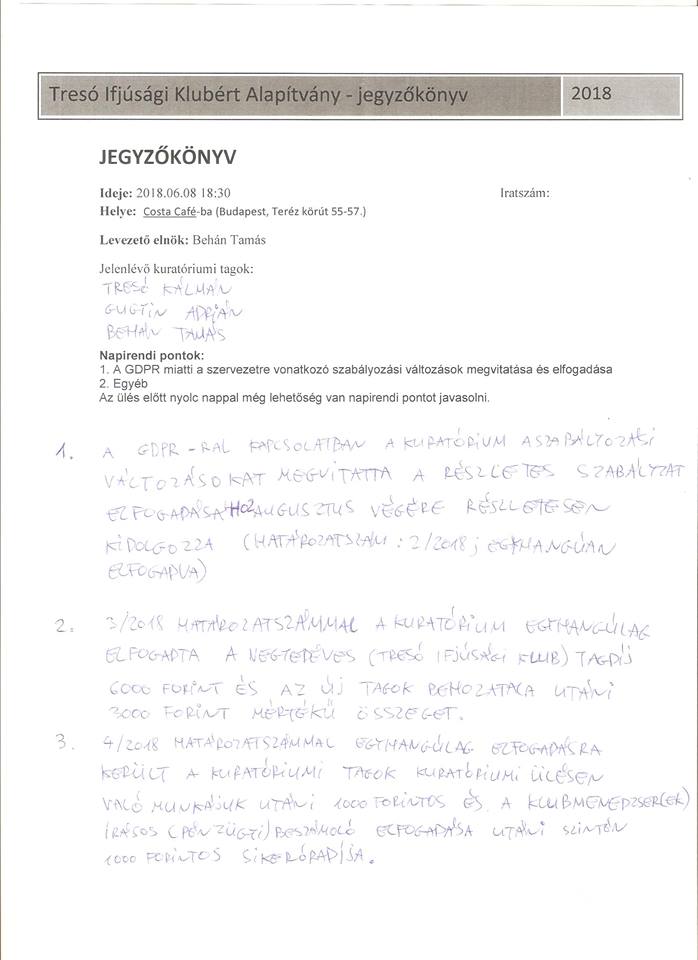 Tresó Ifjúsági Klubért Alapítvány - jegyzőkönyv 2018
JEGYZŐKÖNYV
Ideje: 2018.06.08 18:30 Iratszám:
Helye: Costa Café-ba (Budapest, Teréz körút 55-57.)
Levezető elnök: Behán Tamás
Jelenlévő kuratóriumi tagok:
TRESÓ KÁLMÁN
GUGTIN ADRIÁN
BEHÁN TAMÁS
Napirendi pontok:
1. A GDPR miatti a szervezetre vonatkozó szabályozási változások megvitatása és elfogadása
2. Egyéb
Az ülés előtt nyolc nappal még lehetőség van napirendi pontot javasolni.
1. A GDPR-RAL KAPCSOLATBAN A KURATÓRIUM A SZABÁLYOZÁSI
VÁLTOZÁSOKAT MEGVITATTA A RÉSZLETES SZABÁLYZAT
ELFOGADÁSÁHOZ AUGUSZTUS VÉGÉRE RÉSZLETESEN
KIDOLGOZZA (HATÁROZATSZÁM: 2/2018; EGYHANGÚAN
ELFOGADVA)
2. 3/2018 HATÁROZATSZÁMMAL A KURATÓRIUM EGYHANGÚLAG
ELFOGADTA A NEGYEDÉVES (TRESÓ IFJÚSÁGI KLUB) TAGDÍJ
6000 FORINT ÉS AZ ÚJ TAGOK BEHOZATALA UTÁNI
3000 FORINT MÉRTÉKŰ ÖSSZEGET.
3. 4/2018 HATÁROZATSZÁMMAL EGYHANGÚLAG ELFOGADÁSRA
KERÜLT A KURATÓRIUMI TAGOK KURATÓRIUMI ÜLÉSEN
VALÓ MUNKÁJUK UTÁNI 1000 FORINTOS ÉS A KLUBMENEDZSER(EK)
ÍRÁSOS (PÉNZÜGYI) BESZÁMOLÓ ELFOGADÁSA UTÁNI SZINTÉN
1000 FORINTOS SIKERÓRADÍJA.